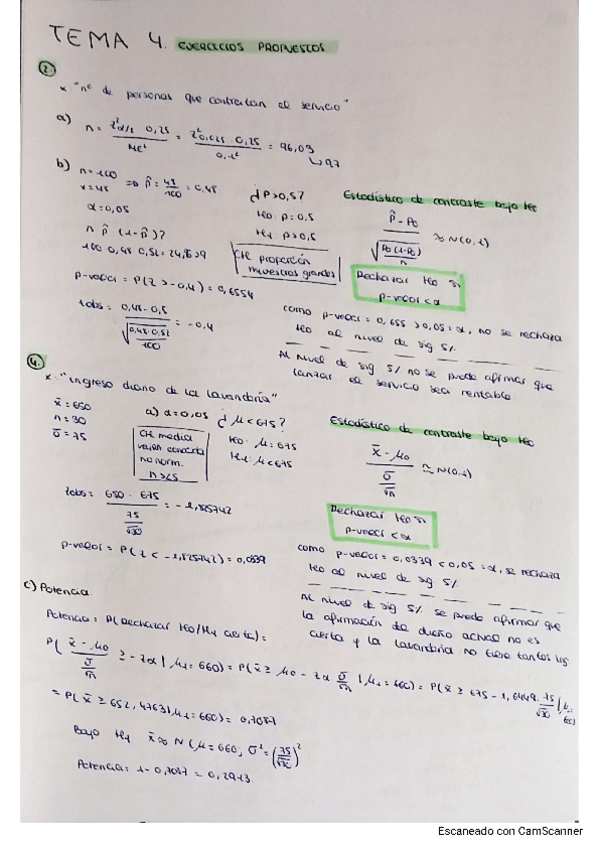 TEMA 4. EJERCICIOS PROPUESTOS
2.
x: "nº de personas que contratan el servicio"
a) n = z²α/2 0,25 / ME² = z²0,025 0,25 / 0,1² = 96,03
↳ 97
b) n = 100
x = 48 ⇒ p̂ = 48/100 = 0,48
α = 0,05
n p̂ (1-p̂)?
100 0,48 0,52 = 24,96 > 9
¿P > 0,5?
H0: P = 0,5
H1: P > 0,5
CH proporción
muestras grandes
Estadístico de contraste bajo H0
p̂ - P0 / √(P0(1-P0)/n) ≈ N(0,1)
Rechazar H0 si
p-valor < α
p-valor = P(Z > -0,4) = 0,6554
tobs = 0,48 - 0,5 / √(0,48·0,52/100) = -0,4
como p-valor = 0,655 > 0,05 = α, no se rechaza
H0 al nivel de sig 5%.
Al nivel de sig 5% no se puede afirmar que
lanzar el servicio sea rentable
4.
x: "ingreso diario de la lavandería"
x̄ = 650
n = 30
σ = 75
a) α = 0,05 ¿μ < 675?
CH media
no norm.
H0: μ = 675
H1: μ < 675
Estadístico de contraste bajo H0
x̄ - μ0 / σ/√n ≈ N(0,1)
Rechazar H0 si
p-valor < α
tobs = 650 - 675 / 75/√30 = -1,825742
p-valor = P(Z < -1,825742) = 0,0339
como p-valor = 0,0339 < 0,05 = α, se rechaza
H0 al nivel de sig. 5%.
Al nivel de sig 5% se puede afirmar que
la afirmación de dueño actual no es
cierta y la lavandería no tiene tantos
c) Potencia
Potencia = P(Rechazar H0/H1 cierta) =
P( x̄ - μ0 / σ/√n ≥ -zα | μ1 = 660) = P(x̄ ≥ μ0 - zα σ/√n | μ1 = 660) = P(x̄ ≥ 675 - 1,6449 · 75/√30 | μ1 = 660)
= P(x̄ ≥ 652,4763 | μ1 = 660) = 0,7087
Bajo H1 x̄ ≈ N(μ = 660; σ² = (75/√30)²)
Potencia = 1 - 0,7087 = 0,2913.
Escaneado con CamScanner